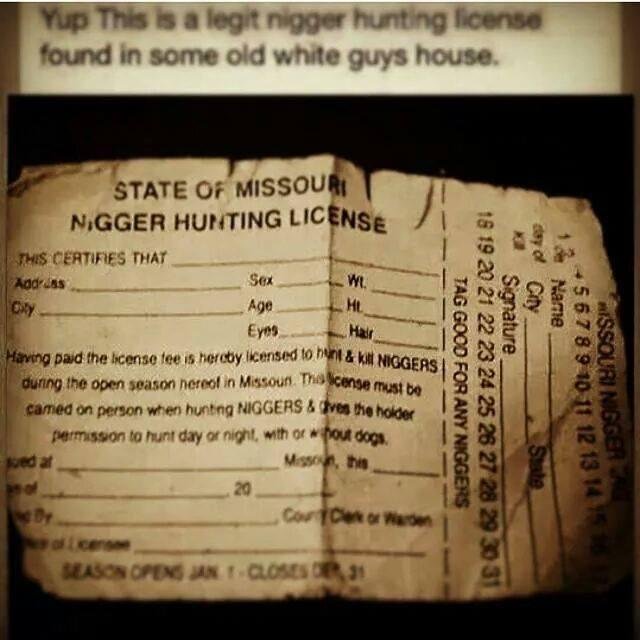 Yup This is a legit nigger hunting license
found in some old white guys house.
STATE OF MISSOURI
NIGGER HUNTING LICENSE
THIS CERTIFIES THAT
Address Sex Wt.
City Age Ht.
Eyes Hair
Having paid the license fee is hereby licensed to hunt & kill NIGGERS
during the open season hereof in Missouri. This license must be
carried on person when hunting NIGGERS & gives the holder
permission to hunt day or night, with or without dogs.
Missouri, this
20
County Clerk or Warden
of Licensee
SEASON OPENS JAN. 1 - CLOSES DEC. 31
MISSOURI NIGGER
4 5 6 7 8 9 10 11 12 13 14 15 16
Name
City State
day of Kill
Signature
18 19 20 21 22 23 24 25 26 27 28 29 30 31
TAG GOOD FOR ANY NIGGERS